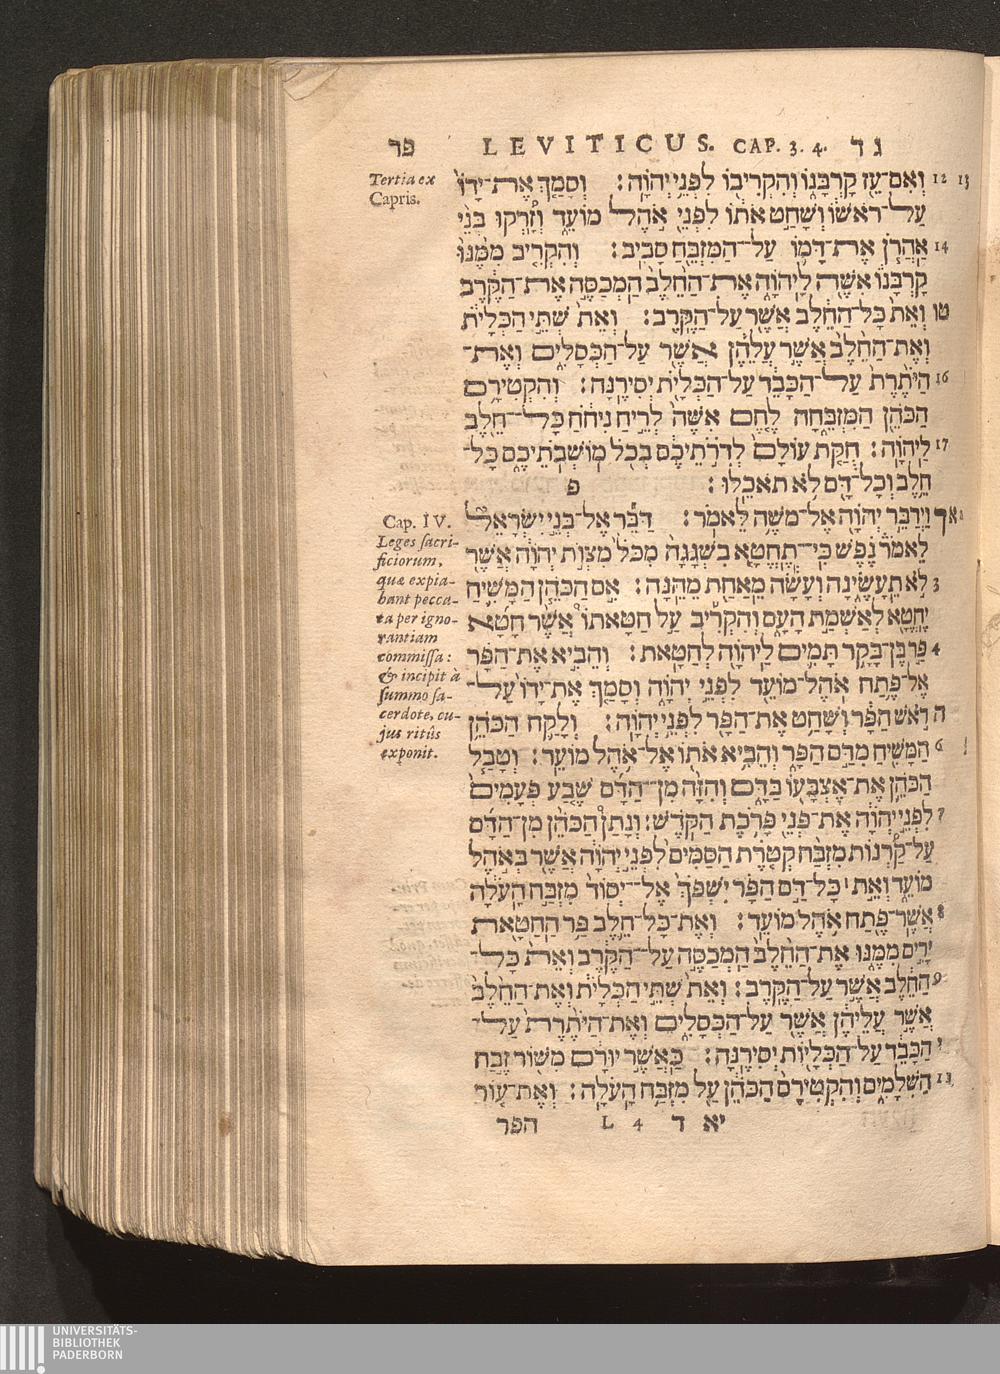 פר LEVITICUS. CAP. 3. 4. ג ד
Tertia ex
Capris.
12 13 וְאִם־עֵז קָרְבָּנוֹ וְהִקְרִיבוֹ לִפְנֵי יְהוָֹה׃ וְסָמַךְ אֶת־יָדוֹ
עַל־רֹאשׁוֹ וְשָׁחַט אֹתוֹ לִפְנֵי אֹהֶל מוֹעֵד וְזָרְקוּ בְּנֵי
14 אַהֲרֹן אֶת־דָּמוֹ עַל־הַמִּזְבֵּחַ סָבִיב׃ וְהִקְרִיב מִמֶּנּוּ
קָרְבָּנוֹ אִשֶּׁה לַיהוָֹה אֶת־הַחֵלֶב הַמְכַסֶּה אֶת־הַקֶּרֶב
טו וְאֵת כָּל־הַחֵלֶב אֲשֶׁר עַל־הַקֶּרֶב׃ וְאֵת שְׁתֵּי הַכְּלָיֹת
וְאֶת־הַחֵלֶב אֲשֶׁר עֲלֵהֶן אֲשֶׁר עַל־הַכְּסָלִים וְאֶת־
16 הַיֹּתֶרֶת עַל־הַכָּבֵד עַל־הַכְּלָיֹת יְסִירֶנָּה׃ וְהִקְטִירָם
הַכֹּהֵן הַמִּזְבֵּחָה לֶחֶם אִשֶּׁה לְרֵיחַ נִיחֹחַ כָּל־חֵלֶב
17 לַיהוָֹה׃ חֻקַּת עוֹלָם לְדֹרֹתֵיכֶם בְּכֹל מוֹשְׁבֹתֵיכֶם כָּל־
חֵלֶב וְכָל־דָּם לֹא תֹאכֵלוּ׃ פ
Cap. IV.
Leges sacri-
ficiorum,
quæ expia-
bant pecca-
ta per igno-
rantiam
commissa:
& incipit à
summo sa-
cerdote, cu-
jus ritûs
exponit.
וַיְדַבֵּר יְהוָֹה אֶל־מֹשֶׁה לֵּאמֹר׃ דַּבֵּר אֶל־בְּנֵי יִשְׂרָאֵל
לֵאמֹר נֶפֶשׁ כִּי־תֶחֱטָא בִשְׁגָגָה מִכֹּל מִצְוֹת יְהוָֹה אֲשֶׁר
3 לֹא תֵעָשֶׂינָה וְעָשָׂה מֵאַחַת מֵהֵנָּה׃ אִם הַכֹּהֵן הַמָּשִׁיחַ
יֶחֱטָא לְאַשְׁמַת הָעָם וְהִקְרִיב עַל חַטָּאתוֹ אֲשֶׁר חָטָא
4 פַּר בֶּן־בָּקָר תָּמִים לַיהוָֹה לְחַטָּאת׃ וְהֵבִיא אֶת־הַפָּר
אֶל־פֶּתַח אֹהֶל־מוֹעֵד לִפְנֵי יְהוָֹה וְסָמַךְ אֶת־יָדוֹ עַל־
ה רֹאשׁ הַפָּר וְשָׁחַט אֶת־הַפָּר לִפְנֵי יְהוָֹה׃ וְלָקַח הַכֹּהֵן
6 הַמָּשִׁיחַ מִדַּם הַפָּר וְהֵבִיא אֹתוֹ אֶל־אֹהֶל מוֹעֵד׃ וְטָבַל
הַכֹּהֵן אֶת־אֶצְבָּעוֹ בַּדָּם וְהִזָּה מִן־הַדָּם שֶׁבַע פְּעָמִים
7 לִפְנֵי יְהוָֹה אֶת־פְּנֵי פָּרֹכֶת הַקֹּדֶשׁ׃ וְנָתַן הַכֹּהֵן מִן־הַדָּם
עַל־קַרְנוֹת מִזְבַּח קְטֹרֶת הַסַּמִּים לִפְנֵי יְהוָֹה אֲשֶׁר בְּאֹהֶל
מוֹעֵד וְאֵת ׀ כָּל־דַּם הַפָּר יִשְׁפֹּךְ אֶל־יְסוֹד מִזְבַּח הָעֹלָה
8 אֲשֶׁר־פֶּתַח אֹהֶל מוֹעֵד׃ וְאֶת־כָּל־חֵלֶב פַּר הַחַטָּאת
יָרִים מִמֶּנּוּ אֶת־הַחֵלֶב הַמְכַסֶּה עַל־הַקֶּרֶב וְאֵת כָּל־
9 הַחֵלֶב אֲשֶׁר עַל־הַקֶּרֶב׃ וְאֵת שְׁתֵּי הַכְּלָיֹת וְאֶת־הַחֵלֶב
אֲשֶׁר עֲלֵיהֶן אֲשֶׁר עַל־הַכְּסָלִים וְאֶת־הַיֹּתֶרֶת עַל־
י הַכָּבֵד עַל־הַכְּלָיוֹת יְסִירֶנָּה׃ כַּאֲשֶׁר יוּרָם מִשּׁוֹר זֶבַח
11 הַשְּׁלָמִים וְהִקְטִירָם הַכֹּהֵן עַל מִזְבַּח הָעֹלָה׃ וְאֶת־עוֹר
הפר L 4 יא ד
UNIVERSITÄTS-
BIBLIOTHEK
PADERBORN